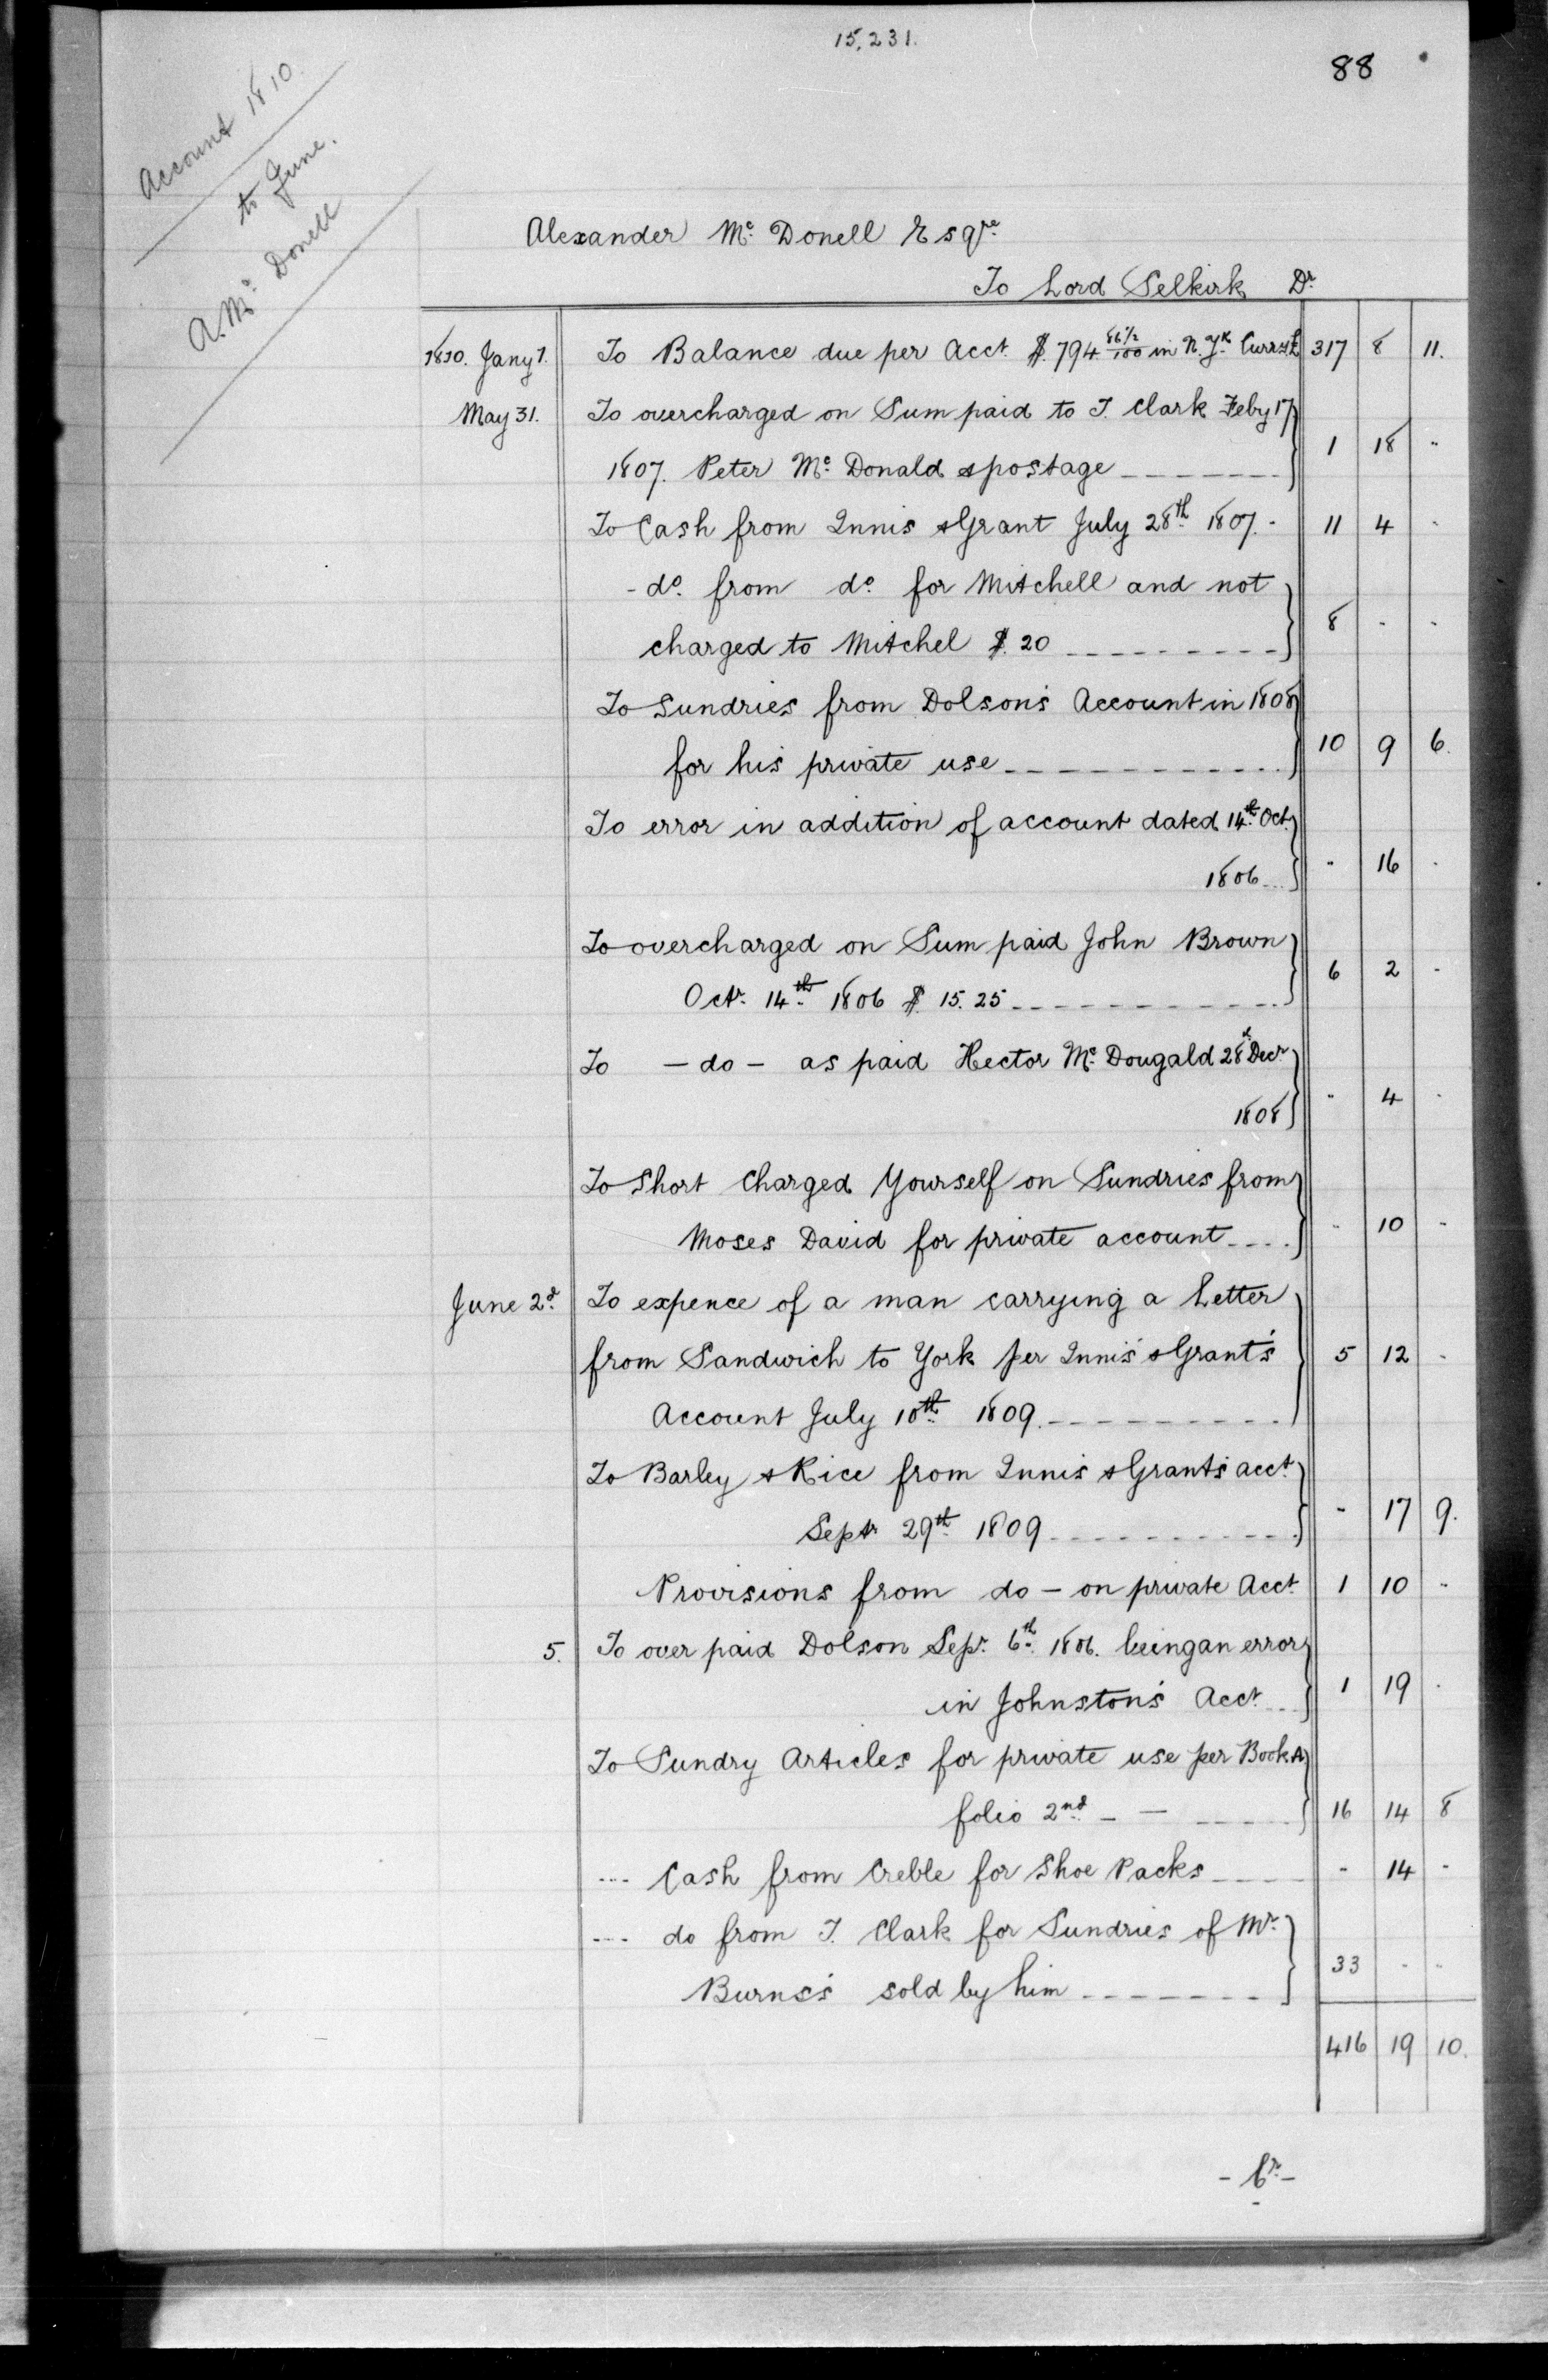 15,231.
88
Account 1810
to June.
A. Mc Donell
Alexander Mc Donell Esqre
To Lord Selkirk Dr
1810. Jany 1. To Balance due per Acct. $794 86½/100 in N. Yk. Curr. £ 317 8 11.
May 31. To overcharged on Sum paid to T. Clark Feby 17
1807. Peter Mc Donald & postage 1 18 "
To Cash from Innis & Grant July 28th 1807. 11 4 -
- do. from do. for Mitchell and not
charged to Mitchel $. 20 8 - -
To Sundries from Dolson's Account in 1808
for his private use 10 9 6.
To error in addition of account dated 14th Oct.
1806 " 16 -
To overcharged on Sum paid John Brown
Octr. 14th 1806 $ 15.25 6 2 -
To - do - as paid Hector Mc Dougald 28th Decr
1808 " 4 -
To Short Charged Yourself on Sundries from
Moses David for private account " 10 -
June 2d. To expence of a man carrying a Letter
from Sandwich to York per Innis & Grant's
Account July 10th 1809. 5 12 -
To Barley & Rice from Innis & Grants acct.
Septr 29th 1809 - 17 9.
Provisions from do - on private Acct. 1 10 -
5. To over paid Dolson Sepr. 6th 1806. being an error
in Johnston's Acct. 1 19 -
To Sundry Articles for private use per Book A
folio 2nd 16 14 8
Cash from Creble for Shoe Packs - 14 -
do from T. Clark for Sundries of Mr.
Burns's sold by him 33 - -
416 19 10.
- Cr -